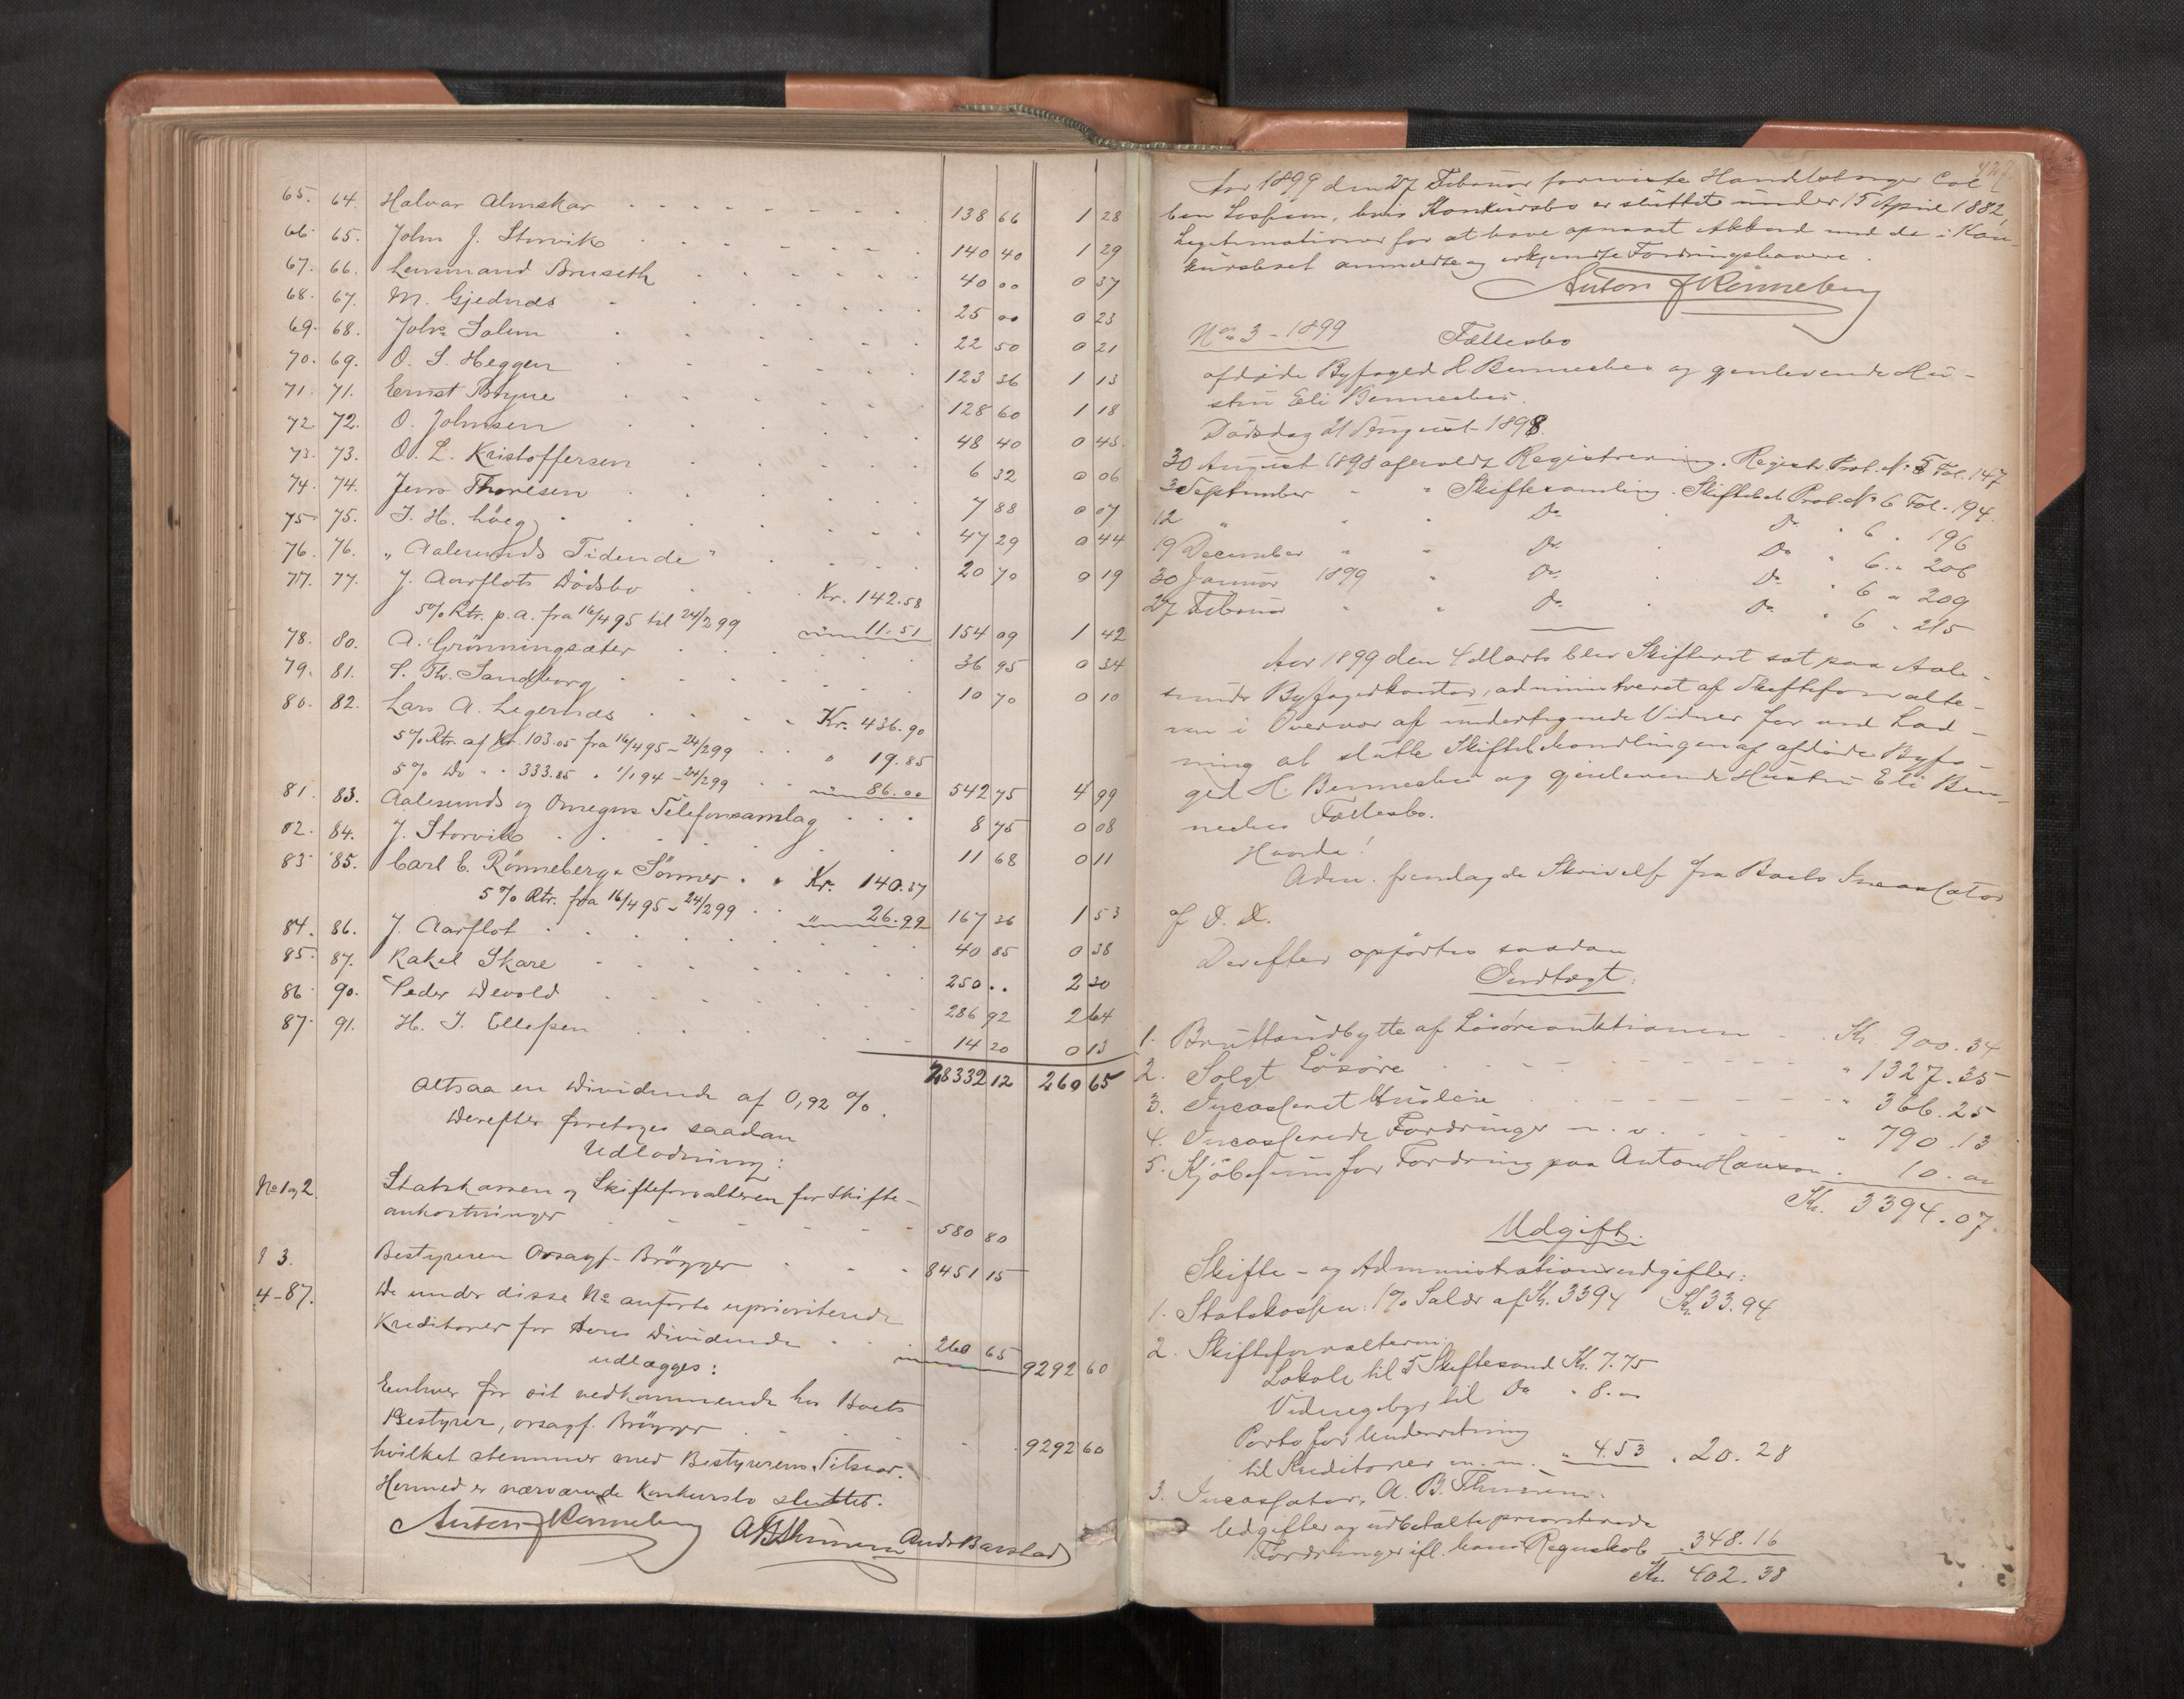 65. 64. Halvar Almskar 138 66 1 28
66. 65. John J. Storvik 140 40 1 29
67. 66. Lensmand Bruseth 40 00 0 37
68. 67. M. Gjednæs 25 00 0 23
69. 68. Johs Solem 22 50 0 21
70. 69. O. S. Heggen 123 36 1 13
71. 71. Ernst Thyne 128 60 1 18
72 72. O. Johnsen 48 40 0 45
73. 73. O. L. Kristoffersen 6 32 0 06
74. 74. Jens Thoresen 7 88 0 07
75. 75. J. H. Höeg 47 29 0 44
76. 76. „Aalesunds Tidende" 20 70 0 19
77. 77. J. Aarflots Dödsbo Kr. 142.58
5% Rtr. p. a. fra 16/4 95 til 24/2 99 " 11.51 154 09 1 42
78. 80. A. Grönningsæter 36 95 0 34
79. 81. P. Th. Sandborg 10 70 0 10
80. 82. Lars A. Legernæs Kr. 436.90
5% Rtr. af Kr. 103.05 fra 16/4 95 - 24/2 99 " 19.85
5% Do " " 333.85 " 1/1 94 - 24/2 99 " 86.00 542 75 4 99
81. 83. Aalesunds og Omegns Telefonsamlag 8 75 0 08
82. 84. J. Storvik 11 68 0 11
83. 85. Carl E. Rönneberg & Sönner Kr. 140.37
5% Rtr. fra 16/4 95 - 24/2 99 " 26.99 167 36 1 53
84. 86. J. Aarflot 40 85 0 38
85. 87. Rakel Skare 250 .. 2 30
86. 90. Peder Devold 286 92 2 64
87. 91. H. J. Ellefsen 14 20 0 13
28332 12 260 65
Altsaa en Dividende af 0,92 %.
Derefter foretages saadan
Udlodning:
No 1 og 2. Statskassen og Skifteforvalteren for Skifte-
omkostninger 580 80
" 3. Bestyreren Ovsagf. Brögger 8451 15
4-87. De under disse No anförte uprioriterede
Kreditorer for deres Dividende 260 65 9292 60
udlægges:
Enhver for sit vedkommende hos Boets
Bestyrer, ovsagf. Brögger 9292 60
hvilket stemmer med Bestyrerens Tilsvar.
Hermed er nærværende Konkursbo sluttet.
Anton J Rönneberg A B Thuness Ands Barstad
427
Aar 1899 den 27 Februar foreviste Handelsborger Col
ben , hvis Konkursbo er sluttet under 15 April 1882,
Legitimationer for at have opnaaet Akkord med de i Kon-
kursboet anmeldte og erkjendte Fordringshavere.
Anton J Rönneberg
No 3 - 1899 Fællesbo
afdøde Byfoged H Bennechen og gjenlevende Hu-
stru Eli Bennechen.
Dødsdag 21 August 1898.
30 August 1898 afholdt Registrering. Registr. Prot. No 5 Fol. 147
3 September " " Skiftesamling. Skiftebeh. Prot. No 6 Fol. 194.
12 " " " Do " Do " 6 " 196
19 December " " Do " Do " 6 " 206
30 Januar 1899 " Do " Do " 6 " 209
27 Februar " " Do " Do " 6 " 215
Aar 1899 den 4 Marts blev Skifteret sat paa Aale-
sunds Byfogedkontor, administreret af Skifteforvalte-
ren i Overvær af undertegnede Vidner for ved Lod-
ning at slutte Skiftebehandlingen af afdøde Byfo-
ged H. Bennechen og gjenlevende Hustru Eli Ben-
nechens Fællesbo.
Hvorda!
Adm. fremlagde Skrivelse fra Boets Incassator
af D. D.
Derefter opførtes saadan
Indtægt:
1. Bruttoudbytte af Løsøreauktionen Kr. 900.34
2. Solgt Løsøre " 1327.35
3. Incasseret Husleie " 366.25
4. Incasserede Fordringer m. v. " 790.13
5. Kjøbesum for Fordring paa Anton Hansen " 10.00
Kr. 3394.07.
Udgift.
Skifte- og Administrationsudgifter:
1. Statskassen: 1% Salær af Kr. 3394 Kr. 33.94
2. Skifteforvalteren:
Lokale til 5 Skiftesaml. Kr. 7.75
Vidnegebyr til Do " 8.00
Porto for Underretning
til Kreditorer m. m. " 4.53 " 20.28
3. Incassator, A. B. Thuness:
Udgifter og udbetalte prioriterede
Fordringer ifl. hans Regnskab 348.16
Kr. 402.38